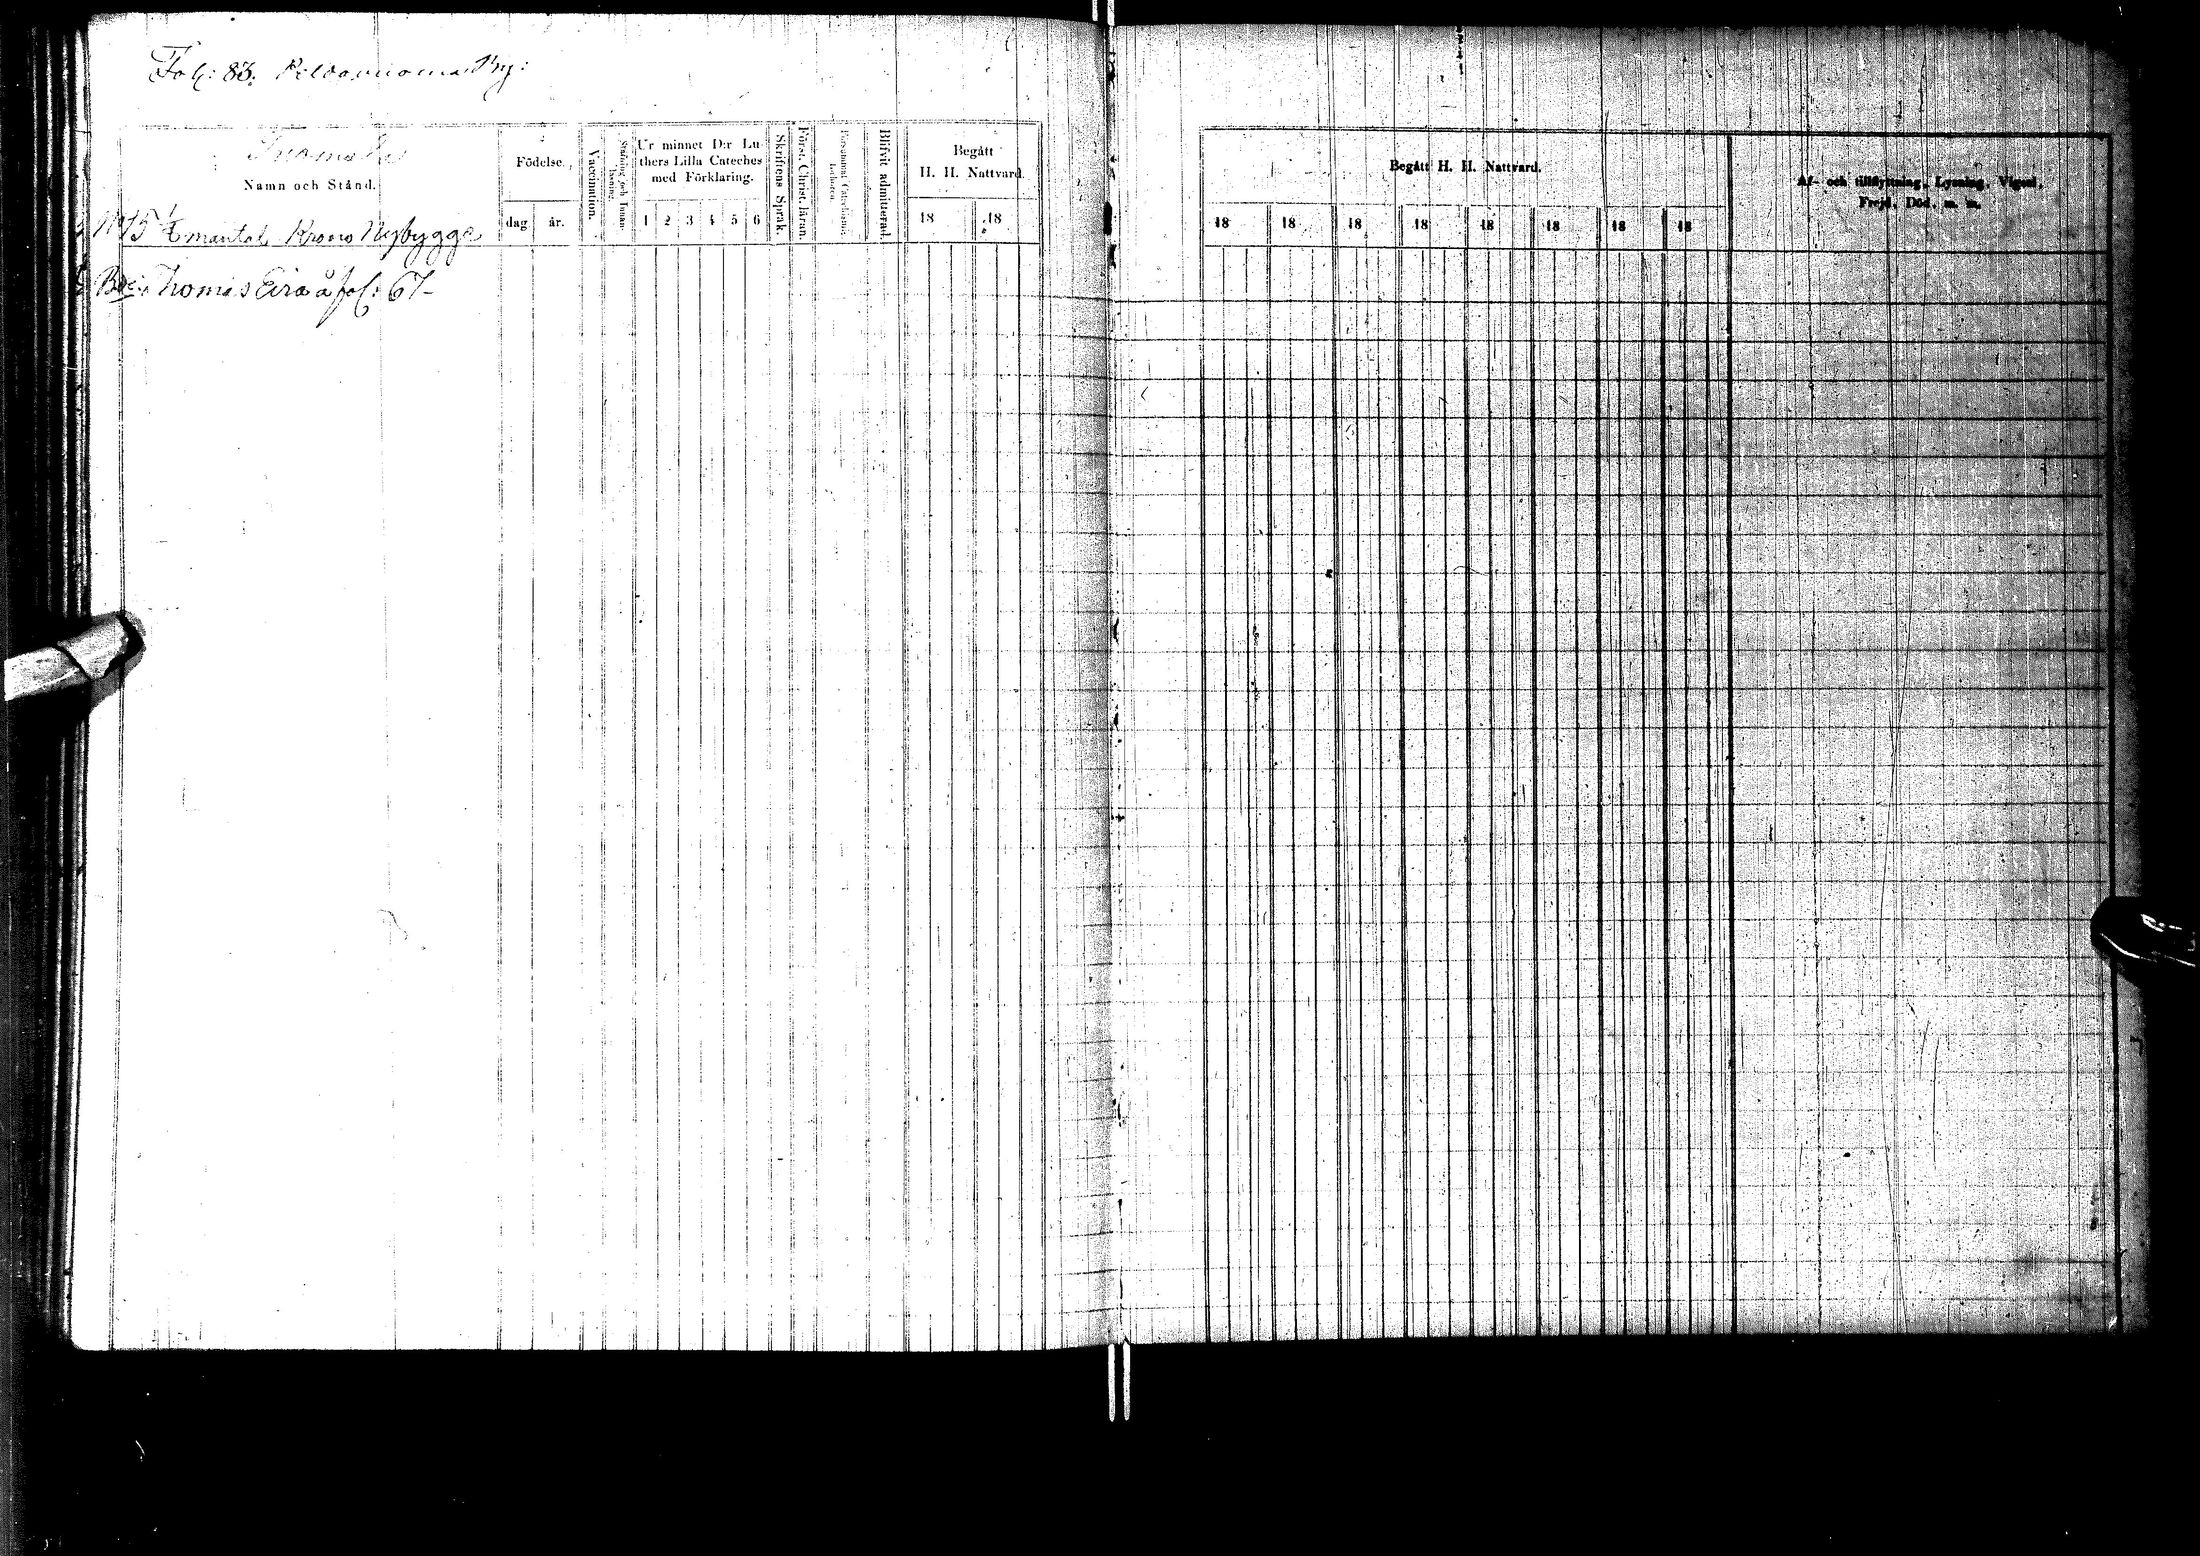 Fol: 83. Peldovuoma By:
Tuomala
Namn och Stånd.
Nº 15 mantal Krono Nybygge
Bde: Thomas Eira å fol: 67
Födelse.
dag år.
Vaccination.
Stafning och Innanläsning.
Ur minnet D:r Luthers Lilla Cateches med Förklaring.
1 2 3 4 5 6
Skriftens Språk.
Först. Christ. läran.
Blifvit admitterad.
Begått
H. H. Nattvard.
18 18
Begått H. H. Nattvard.
18 18 18 18 18 18 18 18
Af- och tillflyttning, Lysning, Vigsel,
Frejd, Död, m. m.